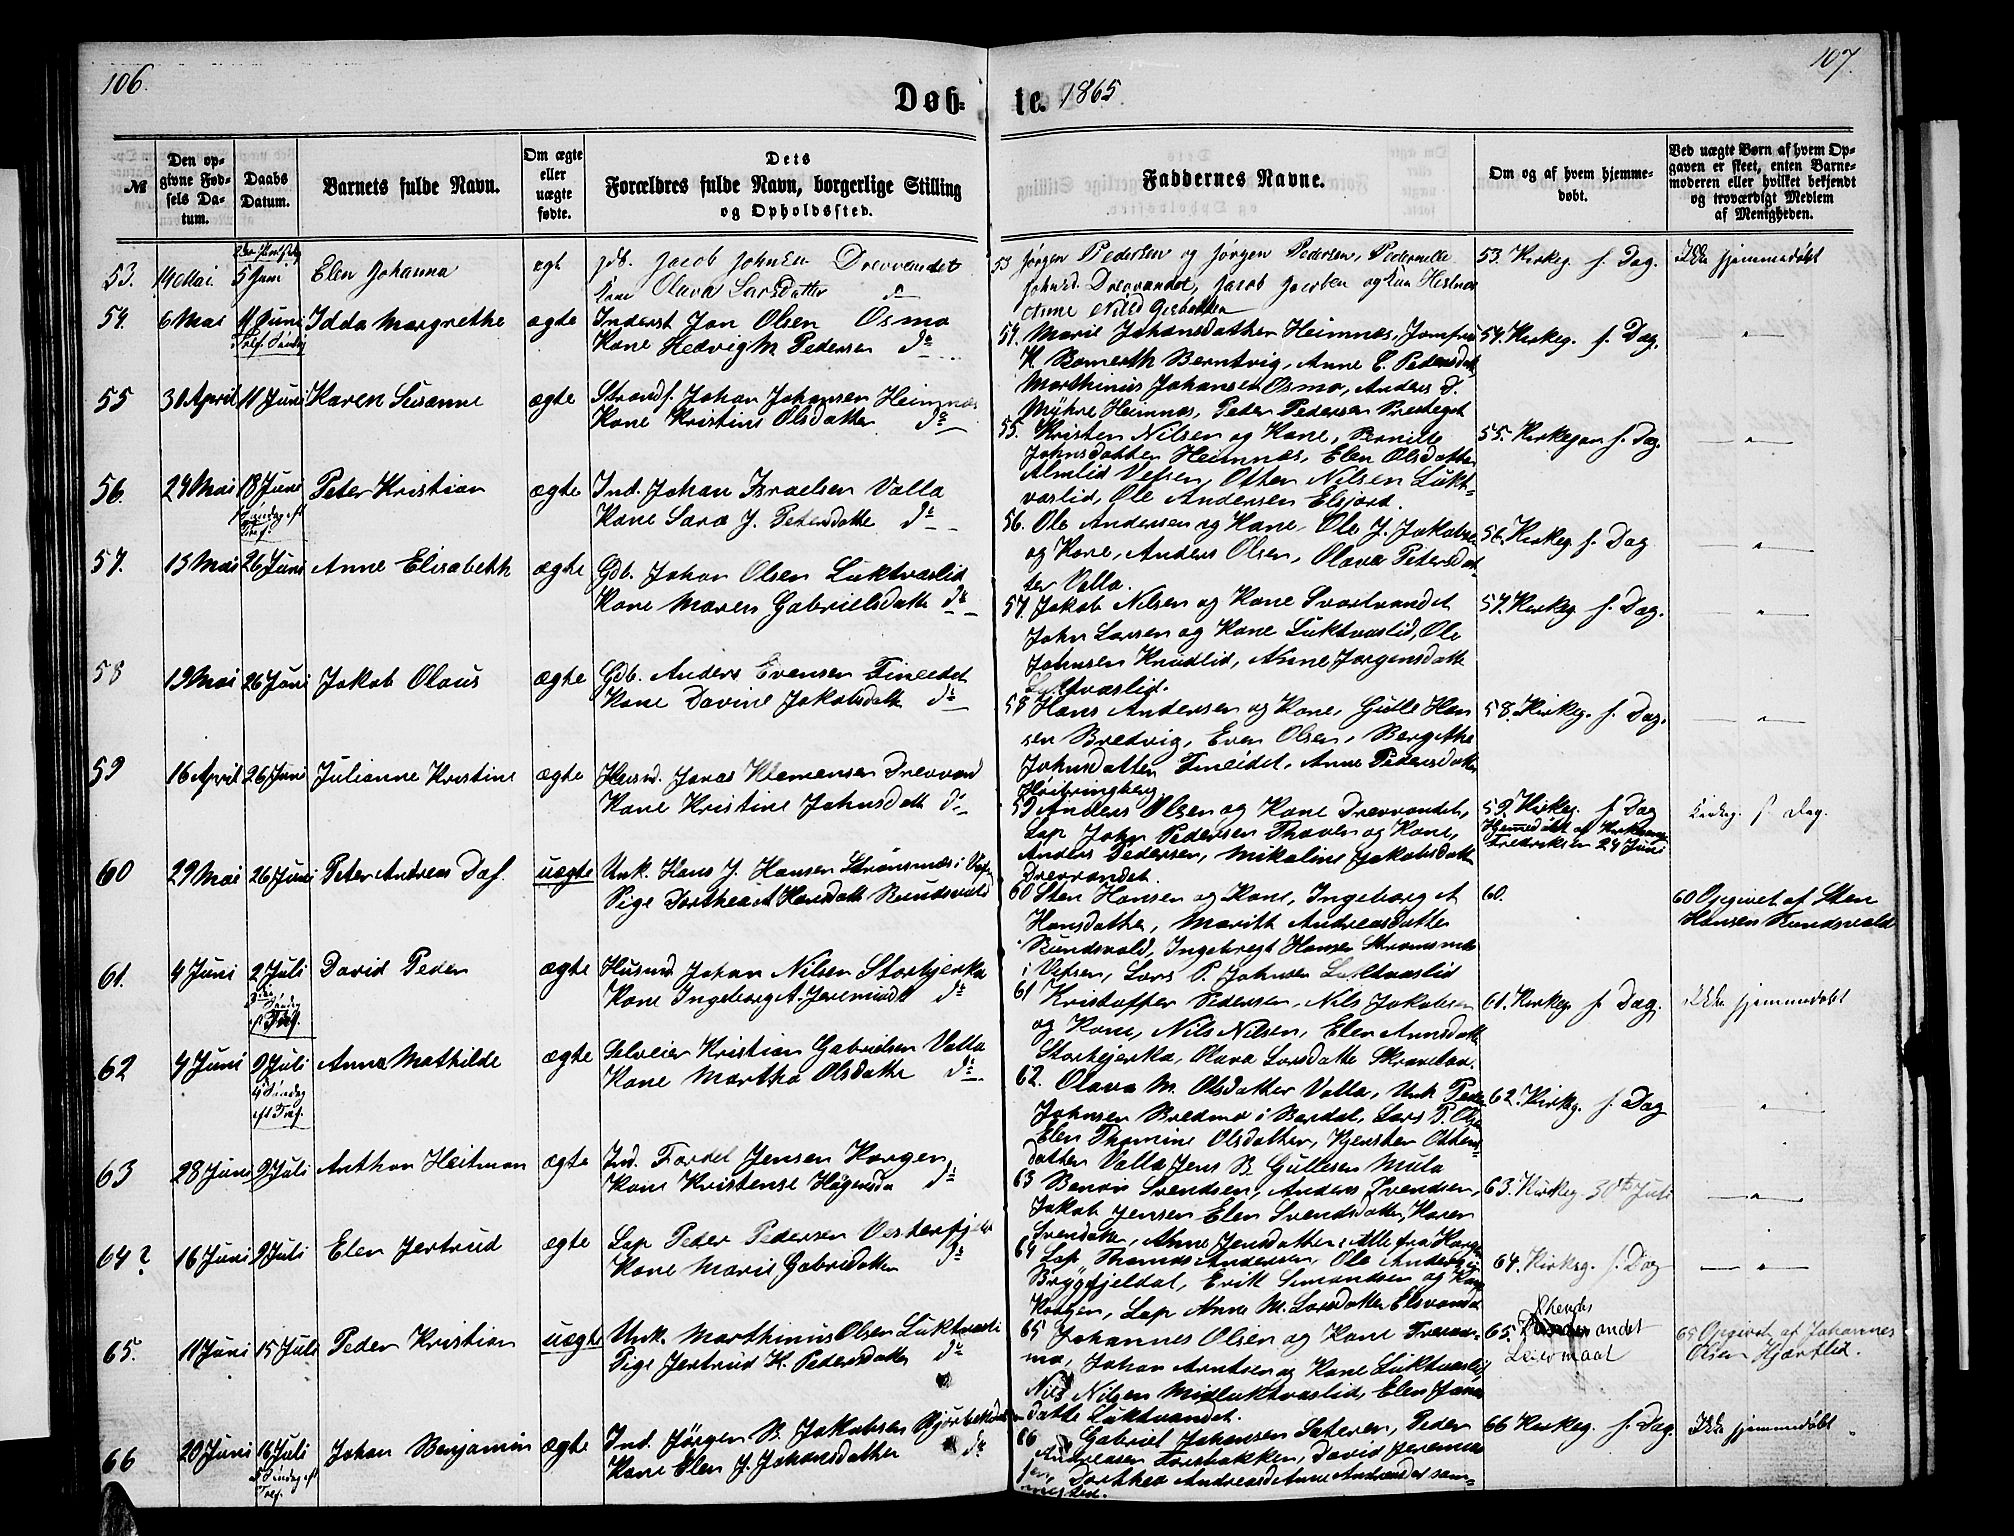 106.
107.
Døb-
te. 1865.
№
Den op-
givne Fød-
sels Da-
tum.
Daabs
Datum.
Barnets fulde Navn.
Om ægte
eller
uægte
fødte.
Dets
Forældres fulde Navn, borgerlige Stilling
og Opholdssted.
Faddernes Navne.
Om og af hvem hjemme-
døbt.
Ved uægte Børn af hvem Op-
gaven er skeet, enten Barne-
moderen eller hvilket bekjendt
og troværdigt Medlem
af Menigheden.
53. 14 Mai 5 Juni Elen Johanna ægt Jacob Johnsen Drevvandet
Kone Olava Larsdatter do
53 Jørgen Pedersen og Jørgen Pedersen, Pedernelle
Johnsd. Drevvandet, Jacob
Anne
53. Kirkeg. s. Dag. Ikke hjemmedøbt
54. 6 Mai 11 Juni Idda Margrethe ægte Inderst Jon Olsen Osmo
Tref. Søndag
Kone Hedvig M Pedersen do
54. Marie Johansdatter Heimnæs, Jomfru
Berntvig, Anne C. Pedersdat
Marthinus Johansen Osmo, Anders D.
Myhre Heimnæs, Peder Pedersen
54. Kirkeg. s. Dag. — " —
55 30 April 11 Juni Karen Susanne ægte Strands. Johan Johansen Heimnæs
Kone Kristine Olsdatter do
55. Kristen Nilsen og Kone, Pernille
Johnsdatter Heimnæs, Elen Olsdatter
Almlid Vefsen, Otter Nilsen Lukt-
vaslid, Ole Andersen Elsjord.
55. Kirkegan s. Dag. — " —
56. 24 Mai 18 Juni Peter Kristian ægte Ind. Johan Israelsen Valla
Søndag eft
Tref.
Kone Sara J. Petersdatte do
56. Ole Andersen og Kone, Ole J. Jakobsen
og Kone, Anders Olsen, Olava Petersdat-
ter Valla.
56. Kirkeg. s. Dag — " —
57. 15 Mai 26 Juni Anne Elisabeth ægte Gdb. Johan Olsen Luktvaslid
Kone Maren Gabrielsdatte do
57 Jakob Nilsen og Kone Svartvandet
John Larsen og Kone Luktvaslid, Ole
Johnsen Knudlid, Anne Jørgensdatte
Luktvaslid.
57. Kirkeg. s. Dag. — " —
58 19 Mai 26 Juni Jakob Olaus ægte Gdb. Anders Evensen Fineidet
Kone Davine Jakobsdatte do
58 Hans Andersen og Kone, Gulle Han
sen Bredvig, Even Olsen, Bergithe
Johnsdatter Fineidet, Anne Pedersdatter
58. Kirkeg. s. Dag. — " —
59 16 April 26 Juni Julianne Kristine ægte Husmd. Jonas Klemensen Drevvand
Kone Kristine Johnsdatte do
59 Anders Olsen og Kone Drevvandet,
Lap John Pedersen og Kone,
Anders Pedersen, Mikaline Jakobsdatte
Drevvandet.
59. Kirkeg. s. Dag
Hjemmedøbt af
Fredriksen 24 Juni
Kirkeg. s. Dag.
60 29 Mai 26 Juni Peter Andreas Daf. uægte Unk. Hans J. Hansen Strømsnæs i Vefsn
Pige Dorthea A Hansdatte
60 Sten Hansen og Kone, Ingeborg A
Hansdatter, Marith Andreasdatter
Ingebregt Hansen Strømsnæs
i Vefsen, Lars P. Johnsen Luktvaslid
60.
60 Opgivet af Sten
Hansen
61. 4 Juni 2 Juli David Peder ægte Husmd Johan Nilsen Storbjerka
Søndag
eft. Tref.
Kone Ingeborg A. Jeremisdt do
61 Kristoffer Pedersen, Nils Jakobsen
og Kone, Nils Nilsen, Elen Annsdatte
Storbjerka, Olava Larsdatte
61. Kirkeg. s. Dag. Ikke hjemmedøbt
62 4 Juni 9 Juli Anna Mathilde ægte Selveier Kristian Gabrielsen Valla
4 Søndag
eft Tref.
Kone Martha Olsdatte do
62. Olava M. Olsdatter Valla, Unk Peder
Johnsen Bredmo i Bardal, Lars P. Olsen
Elen Thomine Olsdatter, Kjersten Otters-
datter Valla Jens B. Gullesen Mula
62. Kirkeg. s. Dag — " —
63 28 Juni 9 Juli Anthon Heitman ægte Ind. Fordel Jensen Korgen,
Kone Kristense do
63 Benoni Svendsen, Anders Svendsen,
Jakob Jensen Elen Svendsdatter, Karen
Svendatter, Anne Jensdatter, Alle fra Korgen
63. Kirkeg. 30te Juli — " —
64? 16 Juni 9 Juli Elen Jertrud ægte Lap Peder Pedersen Vesterfjeld
Kone Marie Gabrielsdatter do
64 Lap Thomas Andersen, Ole Andersen
Bryggfjeldal, Erik Simondsen og Kone
Korgen, Lap Anne M. Larsdatter Elsvandet
64. Kirkeg. s. Dag — " —
65. 11 Juni 15 Juli Peder Kristian uægte Unk. Marthinus Olsen Luktvasli
Pige Jertrud K. Pedersdatter do
65 Johannes Olsen og Kone
mo, Johan Arntsen og Kone Luktvaslid,
Nils Nilsen Midluktvaslid, Elen Jons
datte Luktvandet.
65.
Leiermaal
65 Opgivet af Johannes
Olsen Hjartlid.
66 20 Juni 16 Juli Johan Benjamin ægte Ind. Jørgen B. Jakobsen
5 Søndag eft
Tref.
Kone Elen J. Johansdatter do
66 Gabriel Johansen Seteren, Peder
Andreasen Forsbakken, David Jeremias
sen, Dorthea Andreasd Anne Andreasdat sam-
mested.
66 Kirkeg. s. Dag. Ikke hjemmedøbt